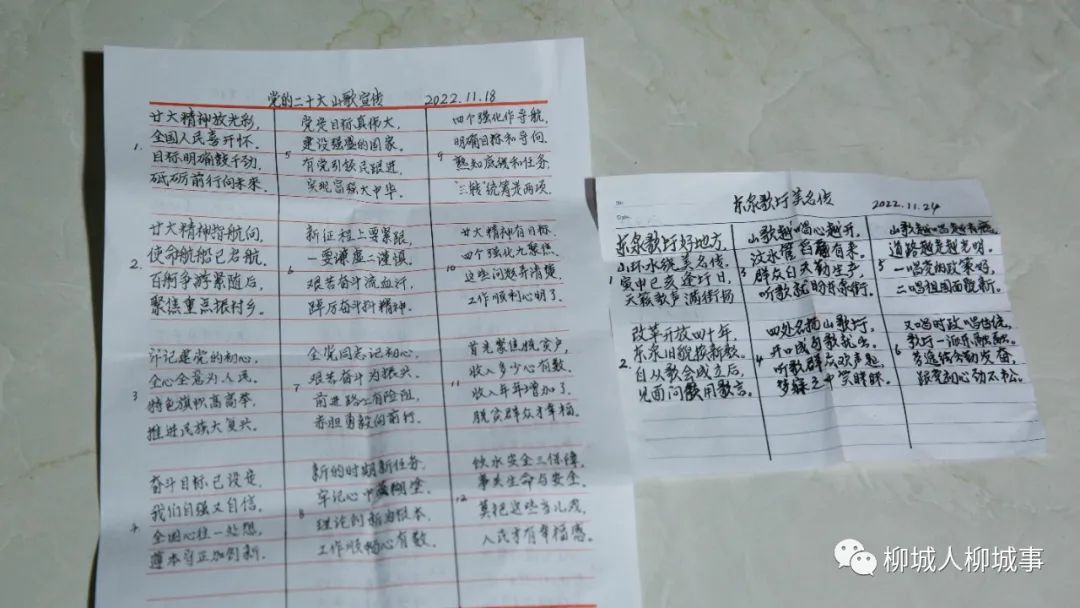 党的二十大山歌宣传 2022.11.18
1.
廿大精神放光彩，
全国人民喜开怀。
目标明确鼓干劲，
砥砺前行向未来。
2.
廿大精神指航向，
使命航船已启航，
百舸争游紧随后，
聚焦重点振村乡。
3
牢记建党的初心，
全心全意为人民。
特色旗帜高高举，
推进民族大复兴。
4
奋斗目标已设定，
我们自强又自信，
全国心往一处想，
守正加创新。
5
党定目标真伟大，
建设强盛的国家，
有党引领民跟进，
实现富强大中华。
6
新征程上要紧跟，
一要谦虚二谨慎，
艰苦奋斗流血汗，
踔厉奋斗科精神。
7
全党同志记初心，
艰苦奋斗为振兴。
前进路上有险阻，
赤胆勇敢向前行。
8
新的时期新任务，
牢记心中莫糊涂，
理论创新为根本，
工作顺畅心有数。
9
四个强化作导航，
明确目标和导向，
熟知底线和任务，
"三转"统筹是两项。
10
廿大精神有目标，
四个强化九聚焦，
这些问题弄清楚，
工作顺利心明了。
11
首先聚焦脱贫户，
收入多少心有数，
收入年年增加了，
脱贫群众才幸福。
12
饮水安全三保障，
事关生命与安全，
莫把这些当儿戏，
人民才有幸福感。
东泉歌圩美名传 2022.11.24
1
东泉歌圩好地方，
山环水绕美名传，
寅申巳亥逢圩日，
天籁歌声满街扬
2.
改革开放四十年，
东泉旧貌换新颜。
自从歌会成立后，
见面问候用歌言。
3
山歌越唱心越开，
群众白天勤生产，
听歌就盼东泉街。
4
四处名扬山歌圩，
开口成句歌就出，
听歌群众欢声起，
梦寐之中笑眯眯。
5
道路越走越光明。
一唱党的政策好，
二唱祖国面貌新。
6
又唱时政唱传统，
歌圩一派乐融融。